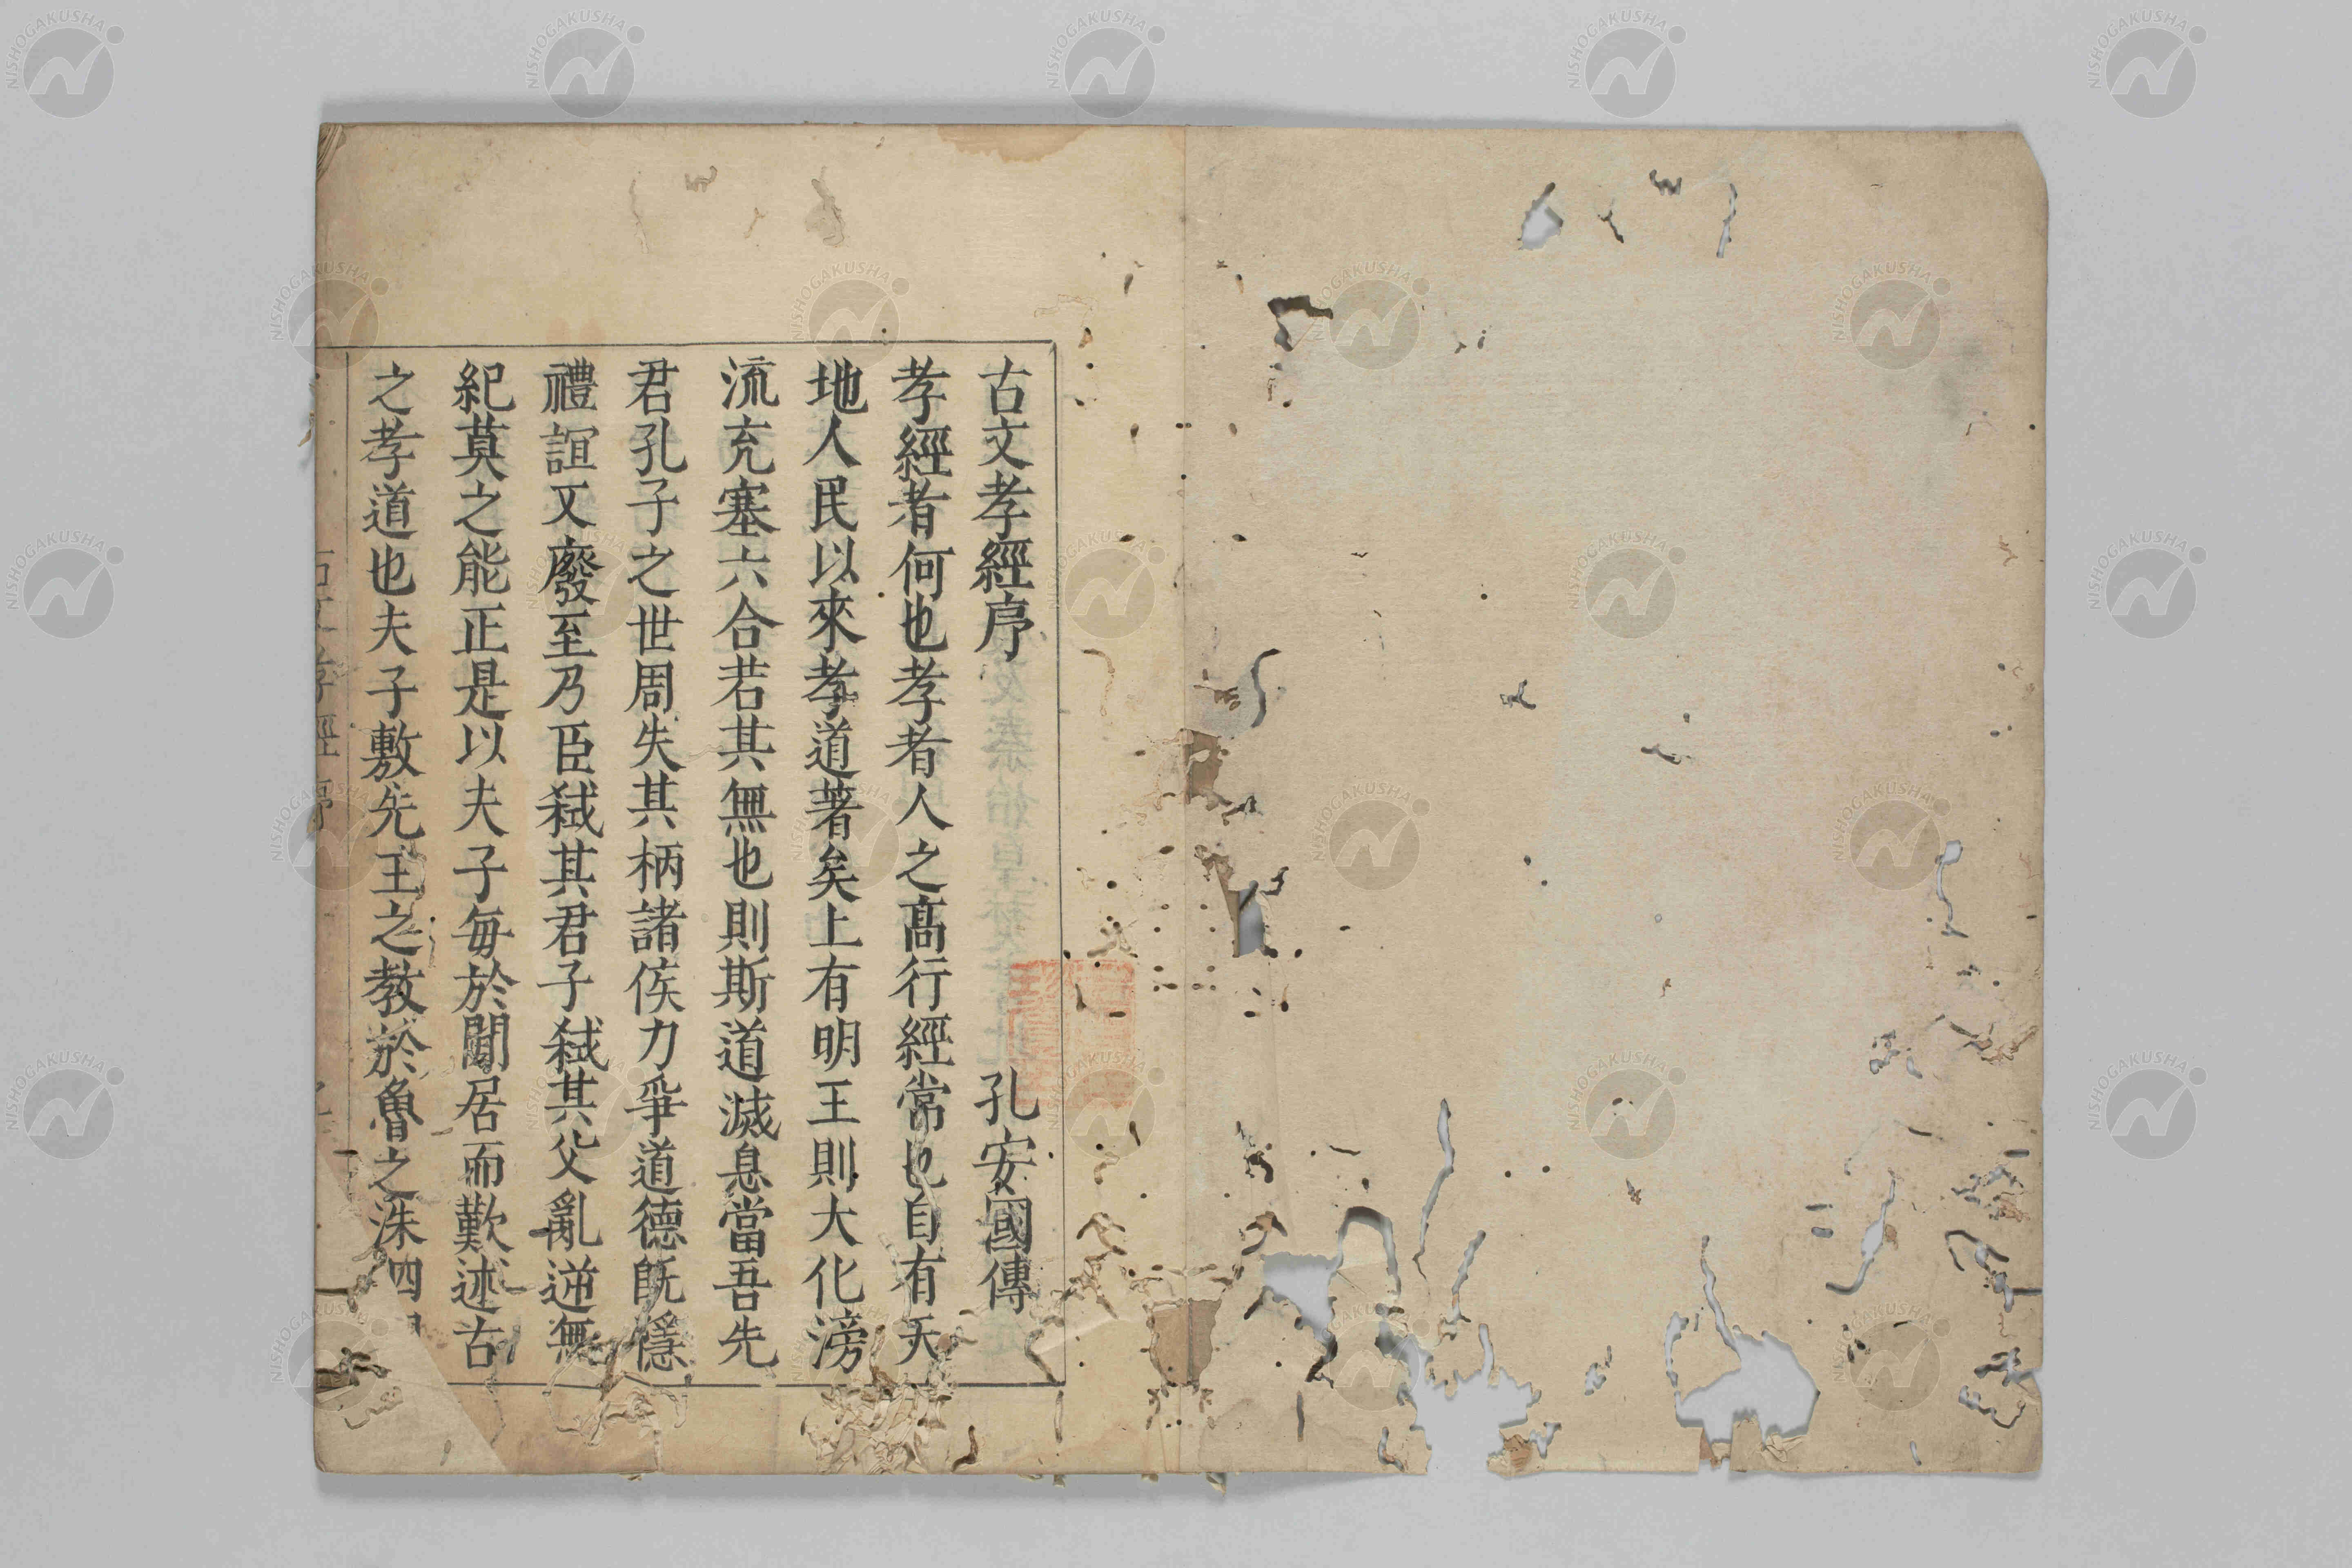 古文孝經序 孔安國傳
孝經者何也孝者人之髙行經常也自有天
地人民以來孝道著矣上有明王則大化滂
流充塞六合若其無也則斯道滅息當吾先
君孔子之世周失其柄諸侯力爭道德旣隱
禮誼又廢至乃臣弑其君子弑其父亂逆無
紀莫之能正是以夫子每於閒居而歎述古
之孝道也夫子敷先王之教於魯之洙泗
古文孝經序
NISHOGAKUSHA